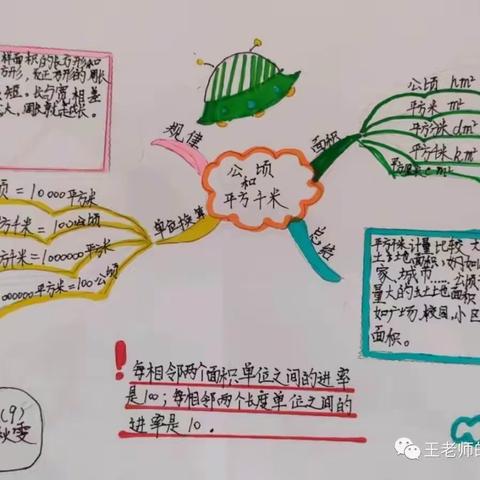 样面积的长方形和
方形，正方形的周长
短。长与宽相差
大，周长就越长。
规律
面积
公顷 hm²
平方米 m²
平方分米 dm²
平方千米 km²
平方厘米 cm²
公顷
和
平方千米
单位换算
总结
顷＝10000平方米
方千米＝100公顷
千米＝1000000平方米
000000平方米＝100公顷
平方千米计量比较大
土地面积，如
家、城市……公顷
量大的土地面积
如广场、校园、小区
面积。
每相邻两个面积单位之间的进率
是100；每相邻两个长度单位之间的
进率是10。
(9)
雯
王老师的